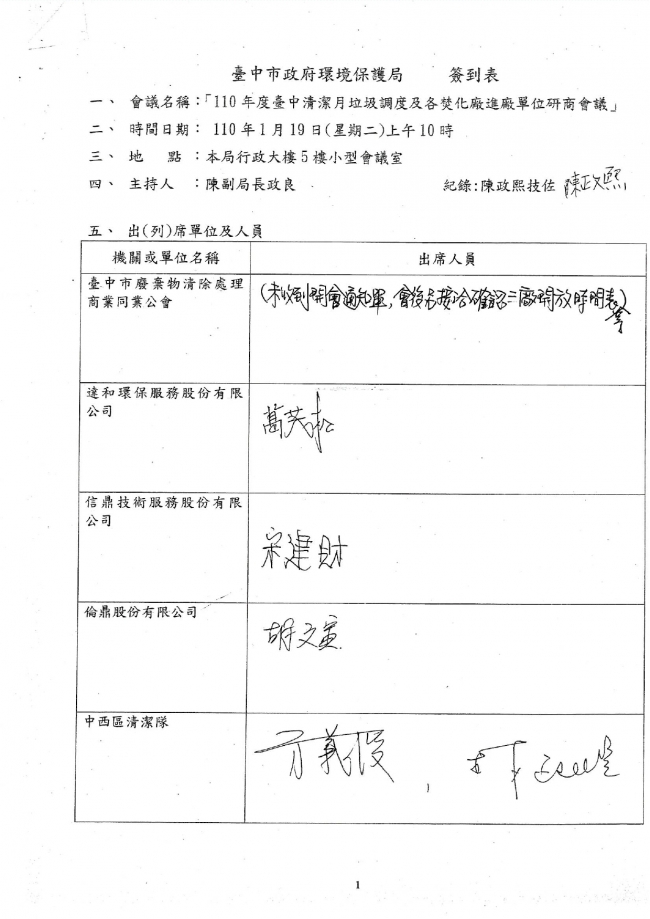 臺中市政府環境保護局 簽到表
一、 會議名稱：「110年度臺中清潔月垃圾調度及各焚化廠進廠單位研商會議」
二、 時間日期：110年1月19日(星期二)上午10時
三、 地 點：本局行政大樓5樓小型會議室
四、 主持人 ：陳副局長政良 紀錄:陳政熙技佐 陳政熙
五、 出(列)席單位及人員
機關或單位名稱 出席人員
臺中市廢棄物清除處理
商業同業公會
(未收到開會通知單,會後 確認三廠開放時間表)
達和環保服務股份有限
公司
葛
信鼎技術服務股份有限
公司
宋建財
倫鼎股份有限公司
胡文
中西區清潔隊
方義俊
1